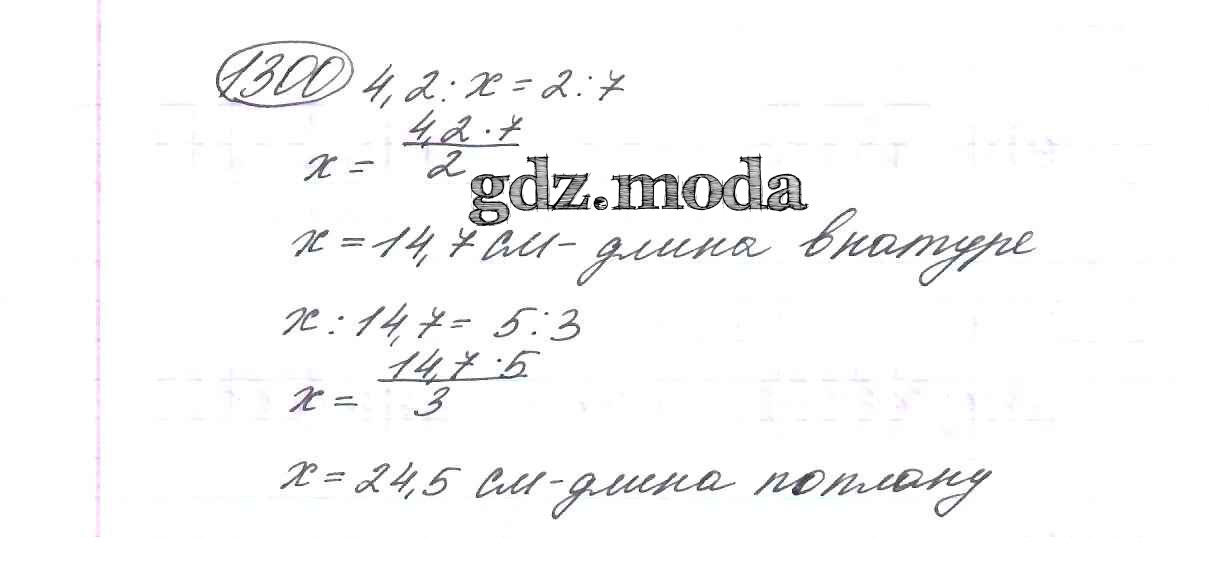 1300 4,2 : x = 2 : 7
x = 4,2 · 7 / 2
gdz.moda
x = 14,7 см - длина в натуре
x : 14,7 = 5 : 3
x = 14,7 · 5 / 3
x = 24,5 см - длина по плану